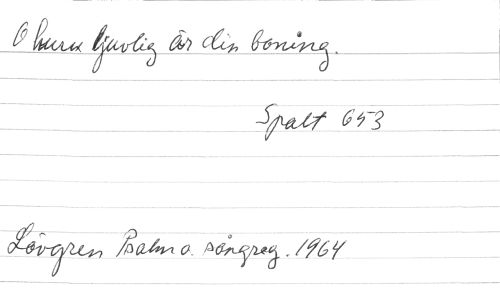 O huru ljuvlig är din boning.
Spalt 653
Lövgren Psalm o. sångreg. 1964